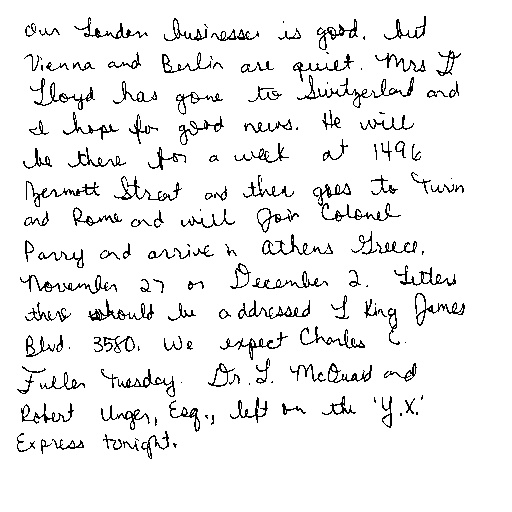 Our London business is good, but
Vienna and Berlin are quiet. Mrs D
Lloyd has gone to Switzerland and
I hope for good news. He will
be there for a week at 1496
Zermott Street and then goes to Turin
and Rome and will join Colonel
Parry and arrive in Athens Greece,
November 27 or December 2. Letters
there should be addressed L King James
Blvd. 3580. We expect Charles E.
Fuller Tuesday. Dr. L. McQuaid and
Robert Unger, Esq., left on the 'Y.X.'
Express tonight.